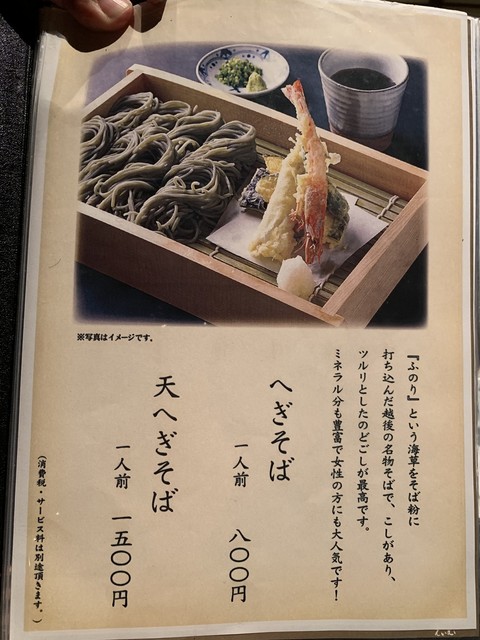 ※写真はイメージです。
『ふのり』という海草をそば粉に
打ち込んだ越後の名物そばで、こしがあり、
ツルリとしたのどごしが最高です。
ミネラル分も豊富で女性の方にも大人気です!
へぎそば
一人前 八〇〇円
天へぎそば
一人前 一五〇〇円
(消費税・サービス料は別途頂きます。)